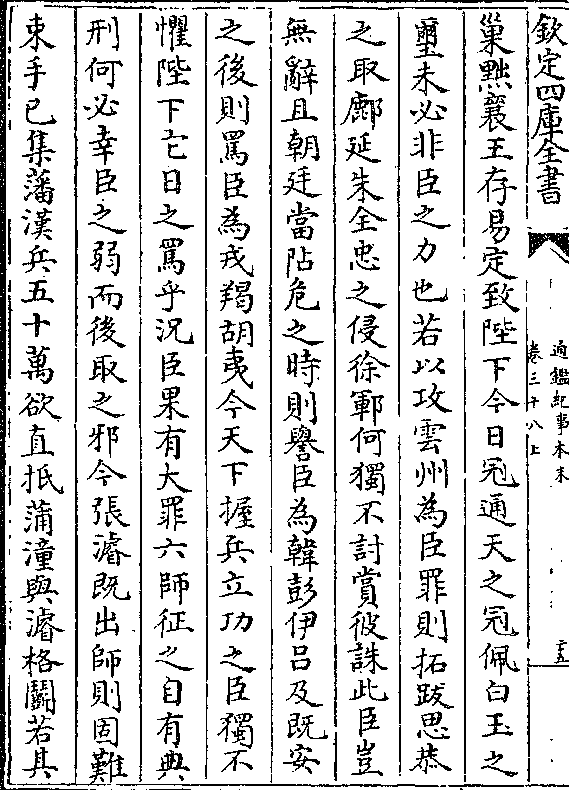 欽定四庫全書
通鑑紀事本末
卷三十八上
巢黜襄王存易定致陛下今日冠通天之冠佩白玉之
璽未必非臣之力也若以攻雲州為臣罪則拓跋思恭
之取鄜延朱全忠之侵徐鄆何獨不討賞彼誅此臣豈
無辭且朝廷當阽危之時則譽臣為韓彭伊吕及既安
之後則罵臣為戎羯胡夷今天下握兵立功之臣獨不
懼陛下它日之罵乎況臣果有大罪六師征之自有典
刑何必幸臣之弱而後取之邪今張濬既出師則固難
束手已集蕃漢兵五十萬欲直抵蒲潼與濬格鬬若其